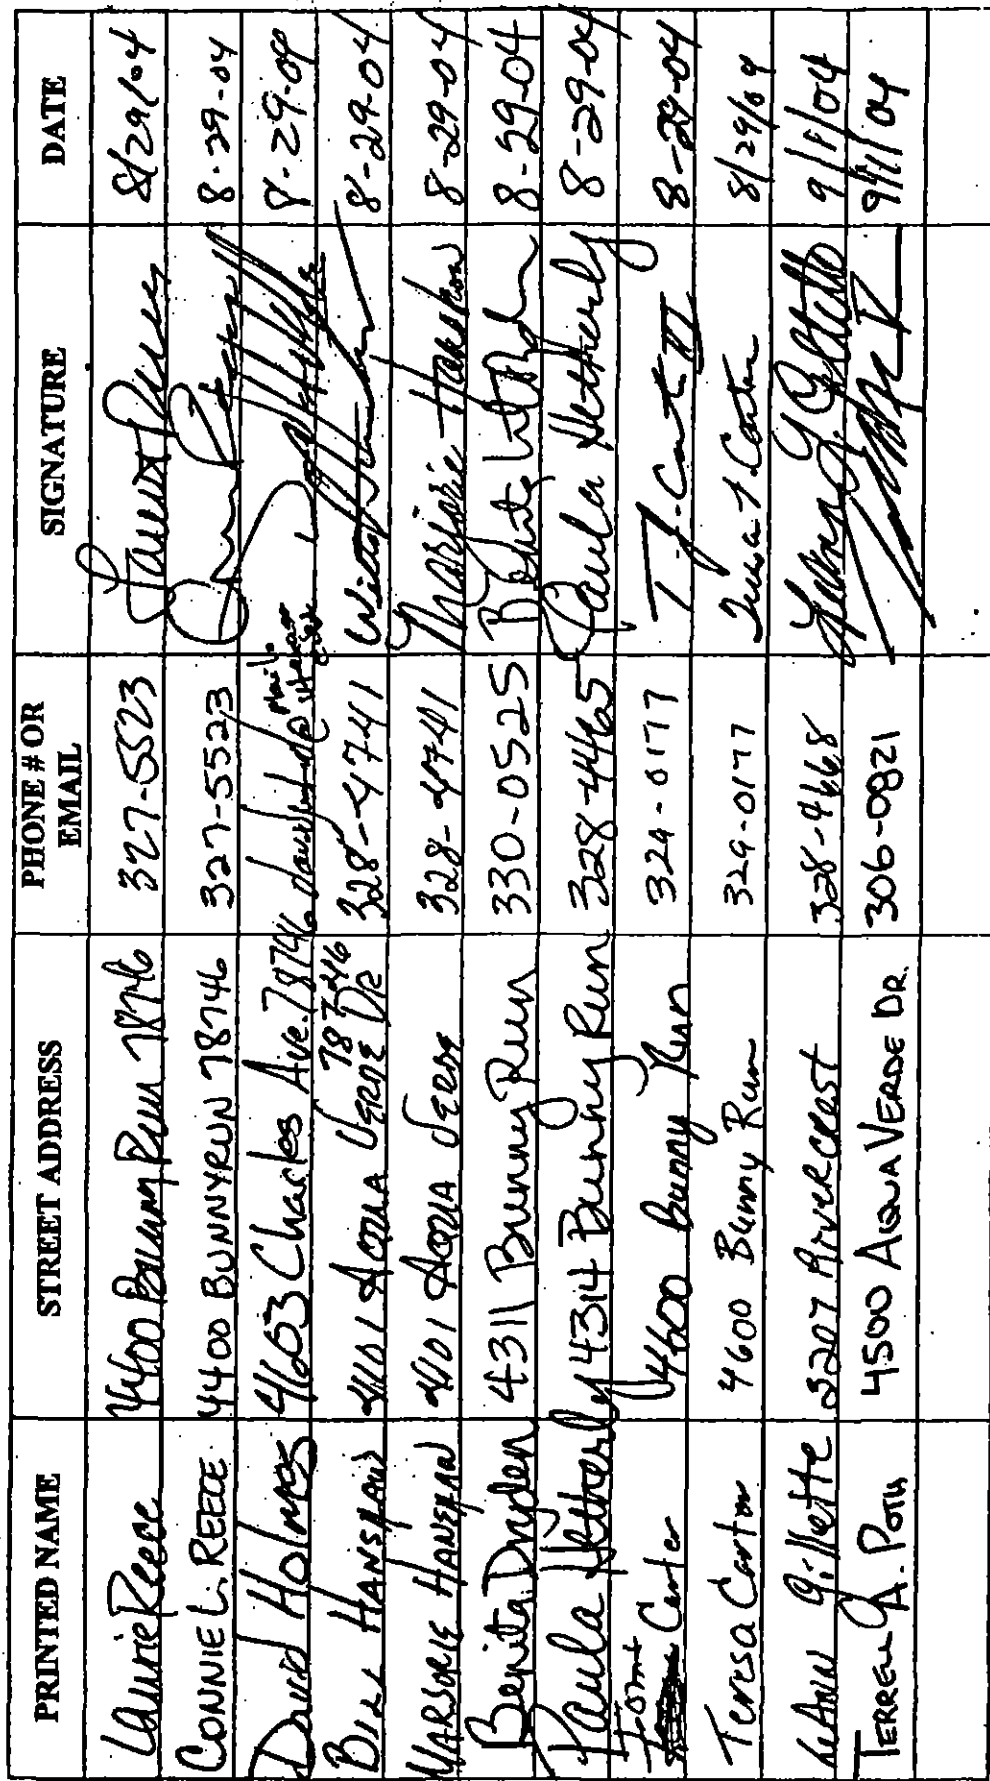 PRINTED NAME STREET ADDRESS PHONE # OR EMAIL SIGNATURE DATE
Laurie Reece 4400 Bunny Run 78746 327-5523 8/29/04
CONNIE L. REECE 4400 BUNNYRUN 78746 327-5523 8-29-04
David Holmes 4603 Charles Ave. 78746 8-29-04
BILL HANSHAW 4101 AQUA VERDE DR 78746 328-4741 8-29-04
MARJORIE HANSHAW 4101 AQUA VERDE 328-4741 Marjorie Hanshaw 8-29-04
Benita Dryden 4311 Bunny Run 330-0525 8-29-04
Paula Hetherly 4314 Bunny Run 328-4465 Paula Hetherly 8-29-04
Tom Carter 4600 Bunny Run 329-0177 T. J. Carter III 8-29-04
Teresa Carter 4600 Bunny Run 329-0177 Teresa Carter 8/29/04
LeAnn Gillette 3207 Rivercrest 328-4668 9/1/04
TERRELL A. POTH 4500 AQUA VERDE DR. 306-0821 9/1/04